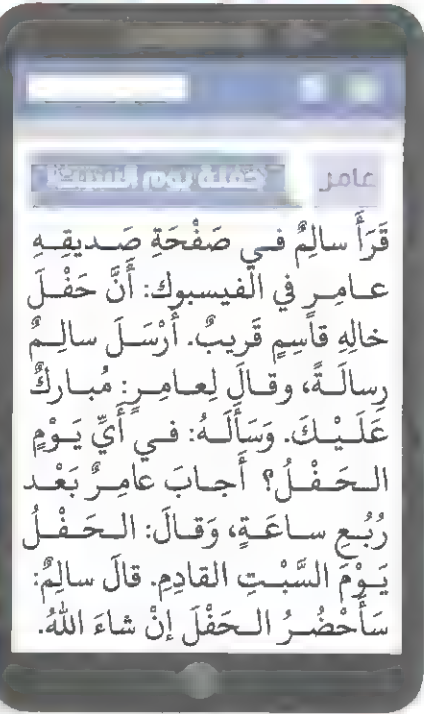 عامر
حفلة يوم السبت
قَرَأَ سالِمٌ فـي صَفْحَةِ صَـديقِـهِ
عـامِـرٍ في الْفيسبوك: أَنَّ حَفْـلَ
خالِهِ قاسِمٍ قَريبٌ. أَرْسَـلَ سالِـمٌ
رِسالَـةً، وقـالَ لِعـامِـرٍ: مُبـارَكٌ
عَلَـيْـكَ. وَسَأَلَـهُ: فـي أَيِّ يَـوْمٍ
الـحَـفْـلُ؟ أَجـابَ عامِـرٌ بَعْـد
رُبُـعِ سـاعَـةٍ، وَقـالَ: الـحَـفْـلُ
يَـوْمَ السَّبْـتِ القادِمِ. قالَ سالِمٌ:
سَأَحْضُـرُ الـحَفْلَ إنْ شاءَ اللهُ.